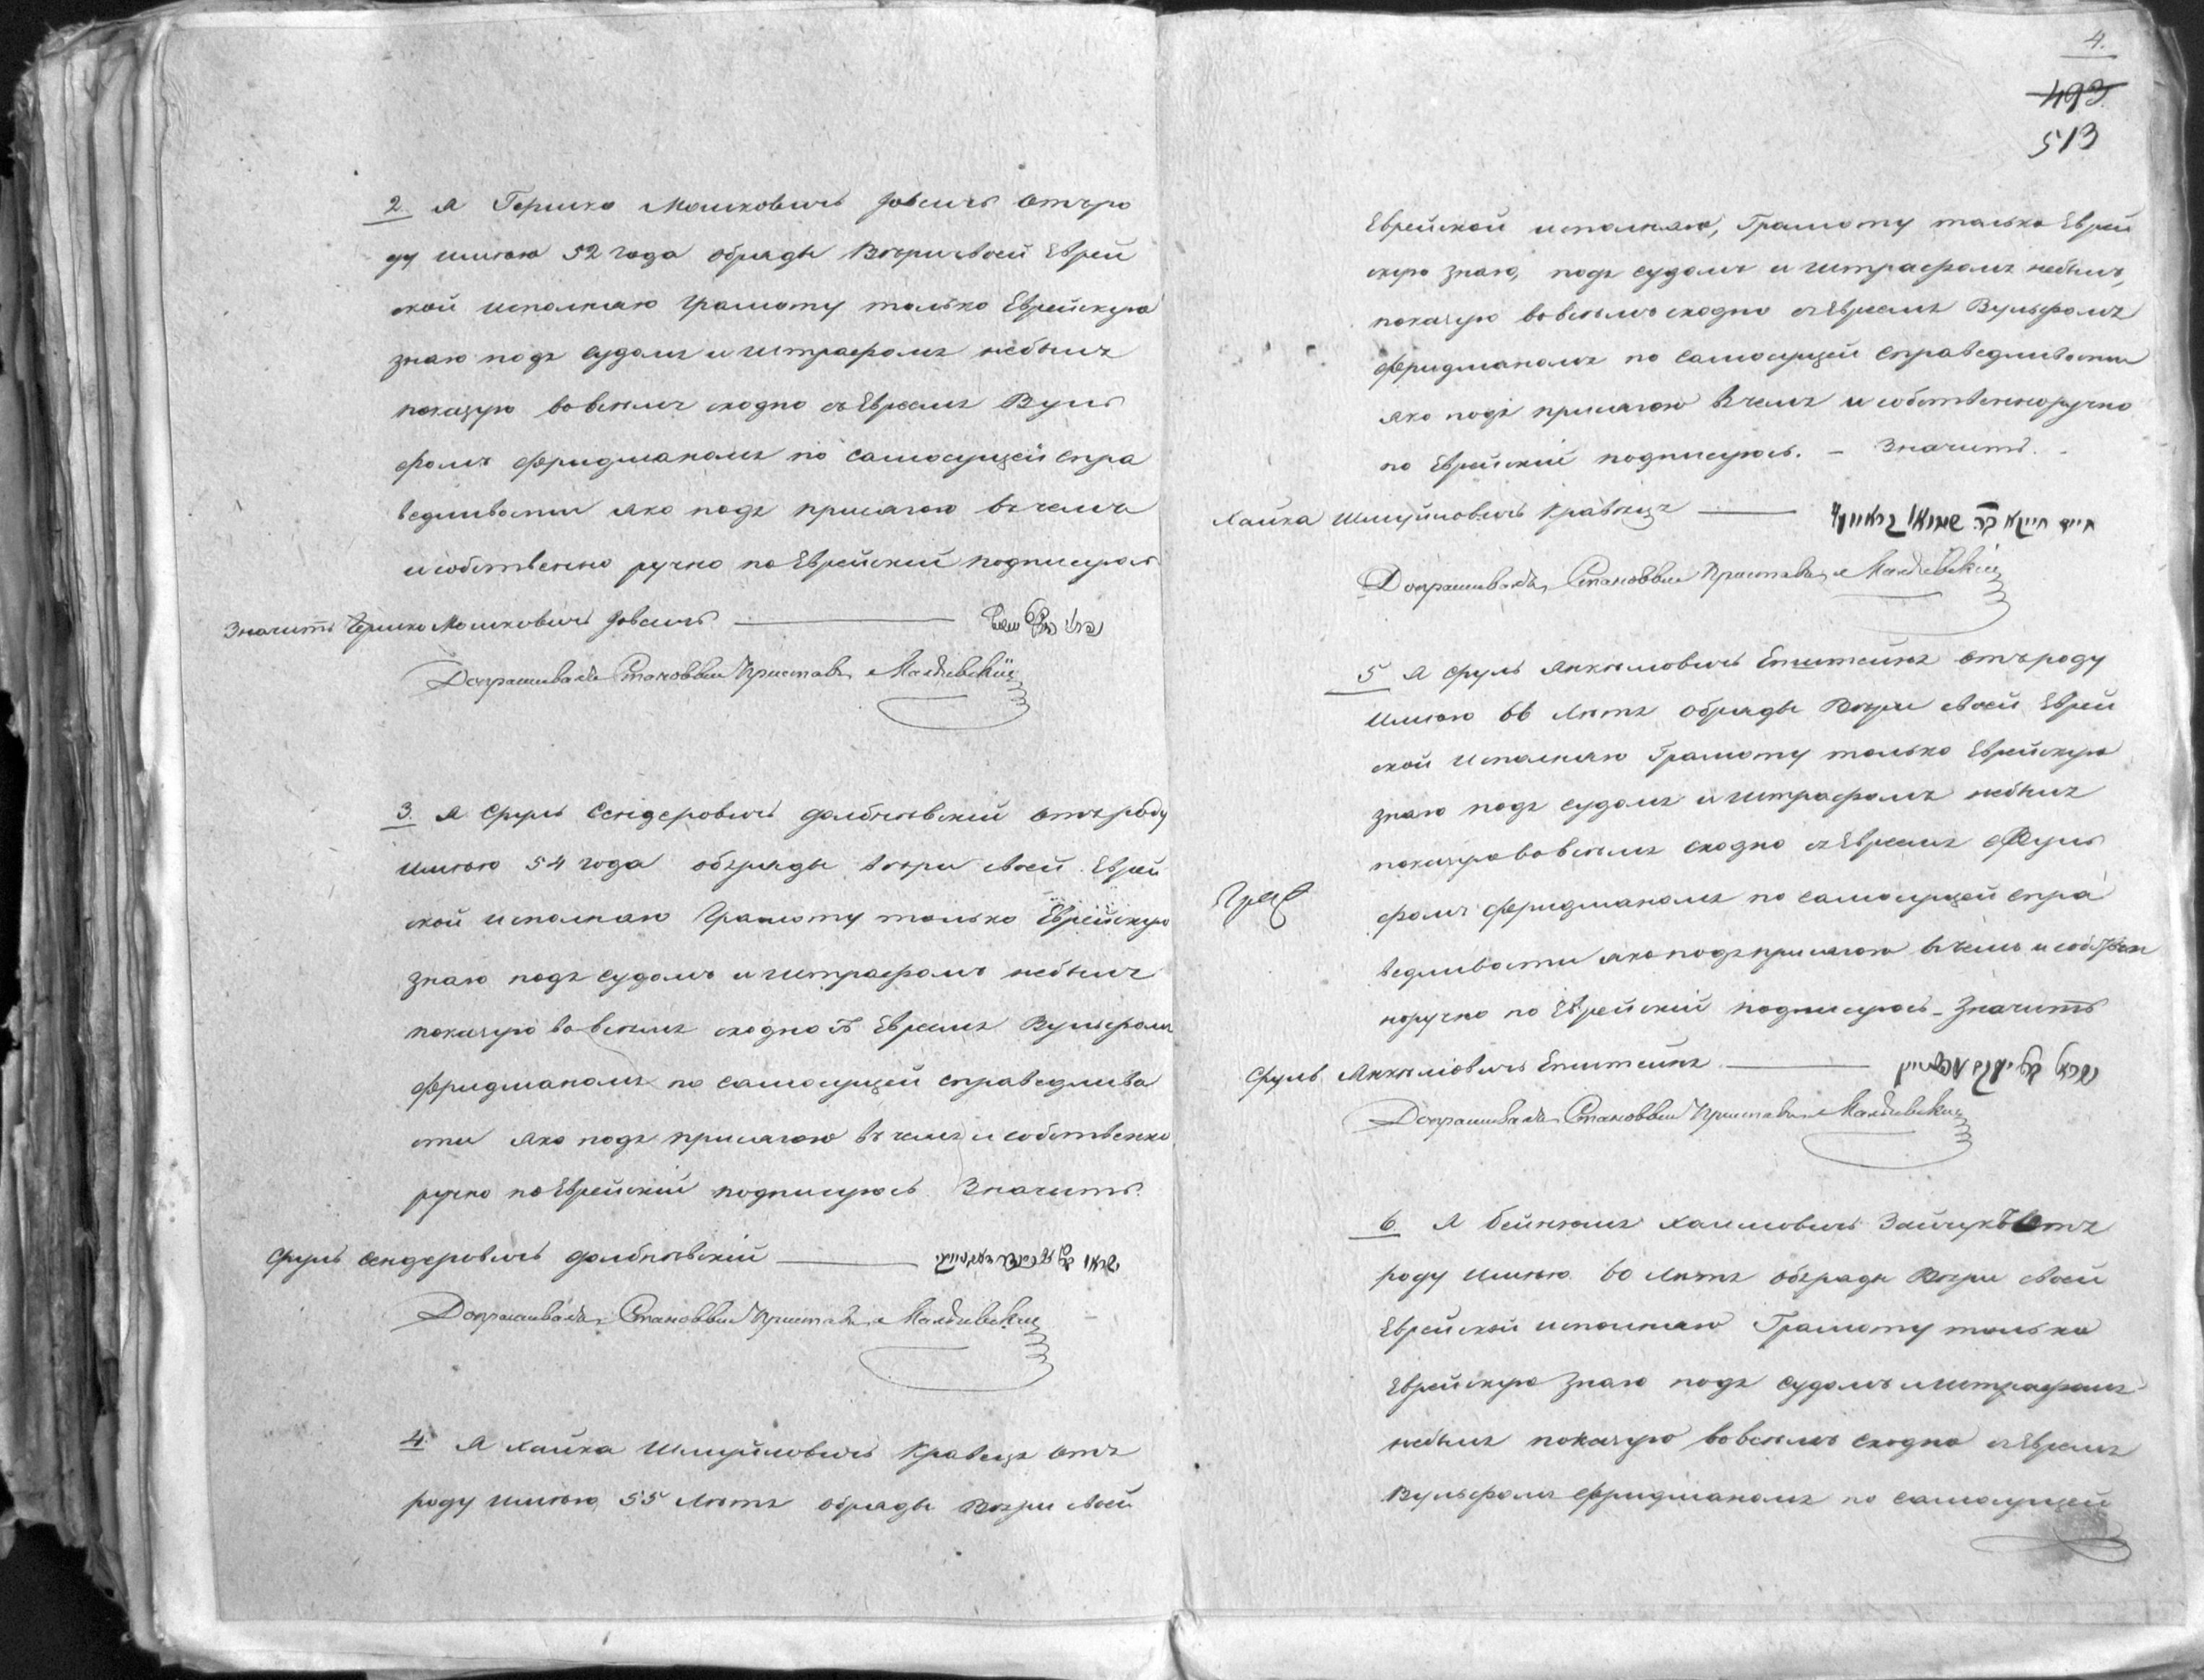 2. Я Гершко Мошковичъ Іовичъ отъро
ду имѣю 52 года обряды Вѣрысвоей Еврей
ской исполняю грамоту только Еврейскую
знаю подъ судомъ и штрафомъ небылъ
показую вовсемъ сходно съЕвреемъ Вуль
фомъ Фридманомъ по самосущей спра
ведливости яко подъ присягою въ чемъ
исобственно ручно поЕврейский подписуюсь
Значитъ Гершко Мошковичъ
Допрашивалъ Становый Приставъ
3. Я Сруль Сендеровичъ Долбнѣвский отъроду
имѣю 54 года объряды вѣры своей Еврей
ской исполняю Грамоту только Еврейскую
знаю подъ судомъ и штрафомъ небылъ
показую вовсемъ сходно съ Евреемъ Вульфомъ
Фридманомъ по самосущей справедливо
сти яко подъ присягою въ чемъ и собственно
ручно поЕврейский подписуюсь Значитъ
Сруль Сендеровичъ Долбнѣвский
Допрашивалъ Становый Приставъ
4. Я Хайка Шмуйловичъ Кравецъ отъ
роду имѣю 55 лѣтъ обряды Вѣры своей
4.
493.
513
Еврейской исполняю, Грамоту только Еврей
скую знаю, подъ судомъ и штрафомъ небылъ,
показую вовсемъ сходно съЕвреемъ Вульфомъ
Фридманомъ по самосущей справедливости
яко подъ присягою въ чемъ и собственноручно
по Еврейский подписуюсь. – Значитъ. -
Хайка Шмуйловичъ Кравецъ
Допрашивалъ Становый Приставъ
5 Я Сруль Янкѣловичъ Епштейнъ отъроду
имѣю 66 лѣтъ обряды Вѣры своей Еврей
ской исполняю Грамоту только Еврейскую
знаю подъ судомъ и штрафомъ небылъ
показуювовсемъ сходно съЕвреемъ Вуль
фомъ Фридманомъ по самосущей спра
ведливости якоподъприсягою въчемъ исобствен
норучно по Еврейский подписуюсь – Значитъ
Сруль Янкѣловичъ Епштейнъ
Допрашивалъ Становый Приставъ
6. Я Бейнюмъ Хаимовичъ Зайчукъ отъ
роду имѣю 60 лѣтъ объряды Вѣры своей
Еврейской исполняю Грамоту только
Еврейскую знаю подъ судомъ иштрафомъ
небылъ показую вовсемъ сходно съЕвреемъ
Вульфомъ Фридманомъ по самосущей